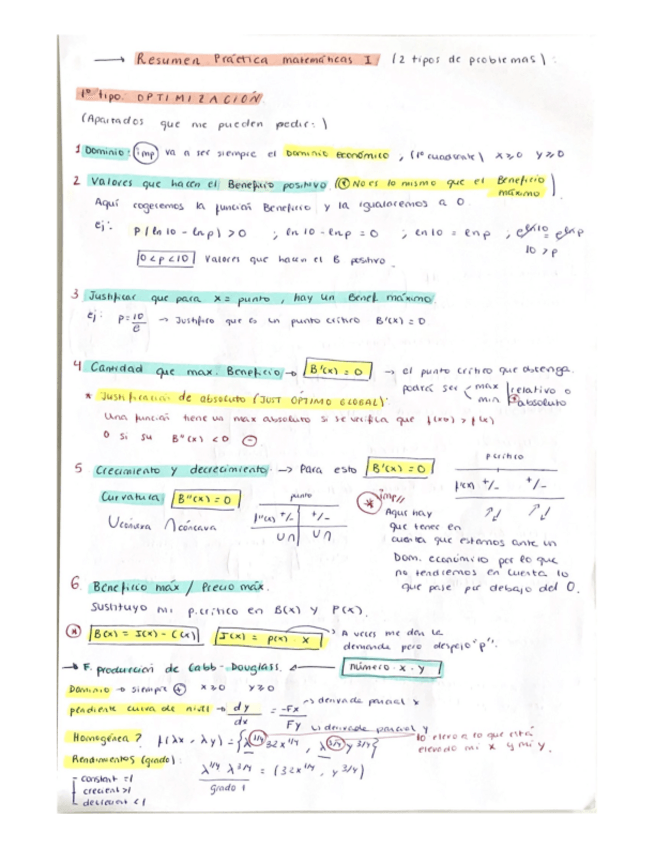 → Resumen Práctica matemáticas I (2 tipos de problemas):
1º tipo: OPTIMIZACIÓN
(Apartados que me pueden pedir:)
1 Dominio: (imp) va a ser siempre el Dominio económico, (1º cuadrante) x≥0 y≥0
2 Valores que hacen el Beneficio positivo (No es lo mismo que el Beneficio máximo)
Aquí cogeremos la función Beneficio y la igualaremos a 0.
ej: P(ln 10 - ln p) > 0 ; ln 10 - ln p = 0 ; ln 10 = ln p ; e^ln10 = e^ln p
10 > p
0 < p < 10 Valores que hacen el B positivo.
3 Justificar que para x = punto, hay un Benef. máximo
ej: p = 10/e → Justifico que es un punto crítico B'(x) = 0
4 Cantidad que max. Beneficio → B'(x) = 0 → el punto crítico que obtenga.
podrá ser max min relativo o absoluto
* Justificación de absoluto (JUST. ÓPTIMO GLOBAL):
Una función tiene un max absoluto si se verifica que f(x0) > f(x)
O si su B''(x) < 0 ⊖
5 Crecimiento y decrecimiento → Para esto B'(x) = 0
p. crítico
f'(x) +/- +/-
Curvatura B''(x) = 0
punto
f''(x) +/- +/-
∪∩ ∪∩
∪convexa ∩cóncava
* imp!!
Aquí hay que tener en cuenta que estamos ante un
Dom. económico por lo que
no tendremos en cuenta lo
que pase por debajo del 0.
6. Beneficio máx / Precio máx.
Sustituyo mi p. crítico en B(x) y P(x).
* B(x) = I(x) - C(x) I(x) = p(x) · x → A veces me dan la demanda pero despejo "p".
→ F. producción de Cobb-Douglass. ← número · x · y
Dominio → siempre ⊕ x≥0 y≥0
pendiente curva de nivel → dy/dx = -Fx/Fy
→ derivada parcial x
↳ derivada parcial y
Homogénea? f(λx, λy) = {λ^1/4 32x^1/4, λ^3/4 y^3/4}
lo elevo a lo que está elevado mi x y mi y.
Rendimientos (grado):
λ^1/4 λ^3/4 = (32x^1/4, y^3/4)
grado 1
- constant = 1
- crecient > 1
- decrecient < 1